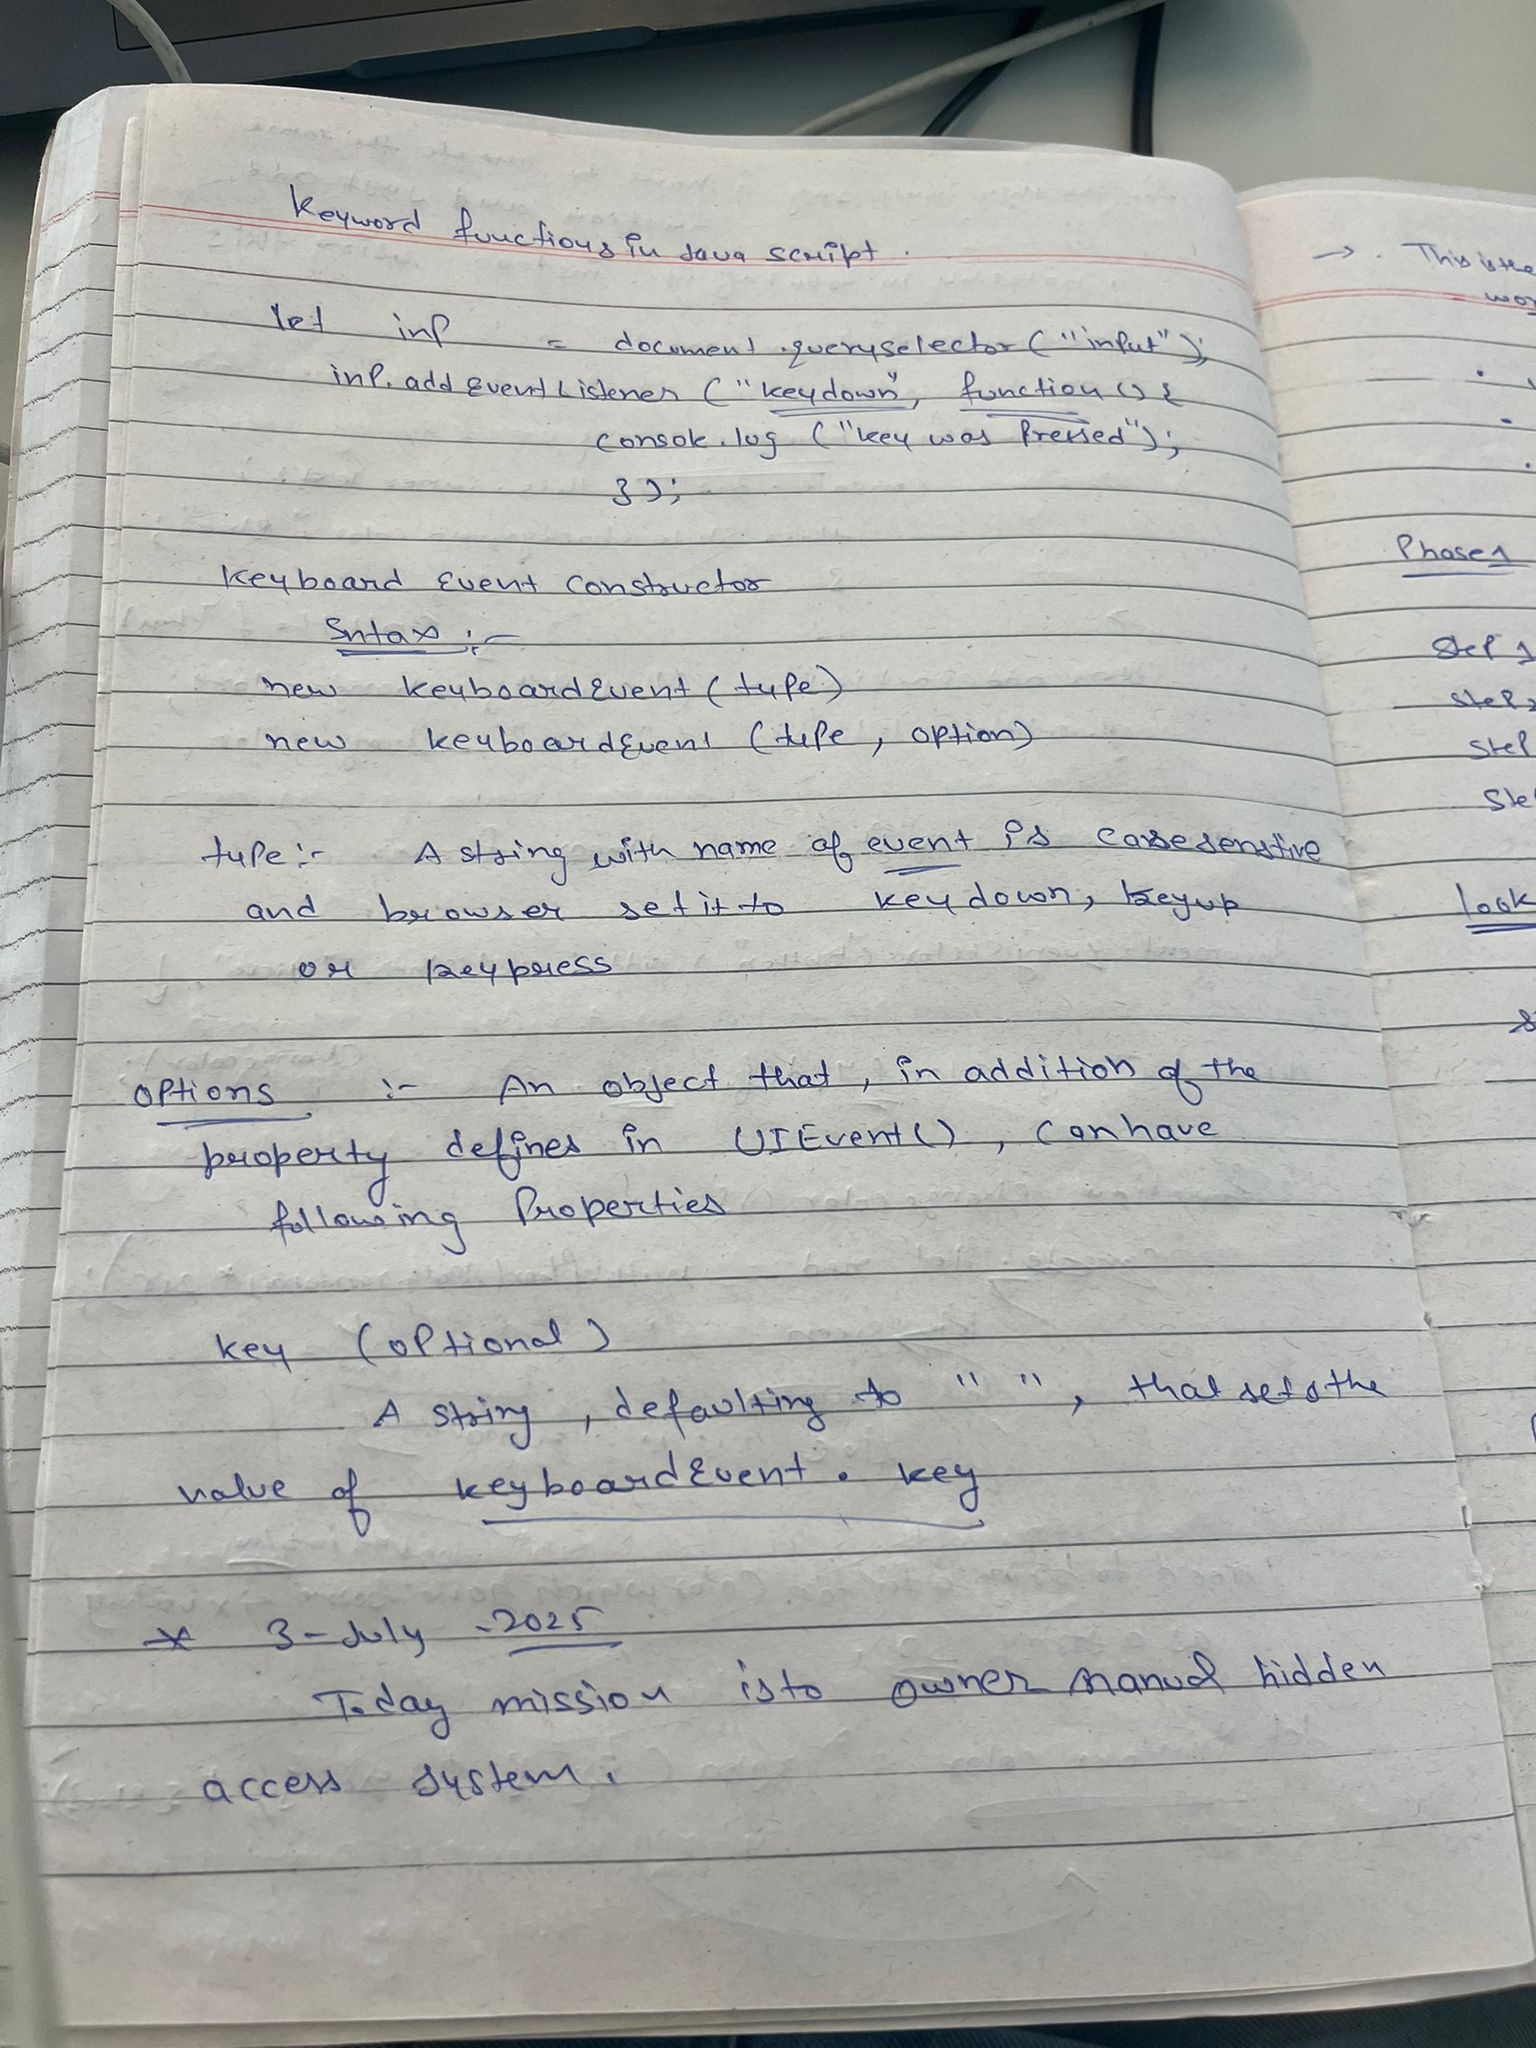 Keyword functions in Java script.
let inp = document.queryselector("input");
inp.addEventListener("keydown", function(){
console.log("key was Pressed");
});
Keyboard Event Constructor
Sntax :-
new KeyboardEvent(type)
new KeyboardEvent (type, option)
type:- A string with name of event is casesenstive
and browser set it to keydown, keyup
or keypress
Options :- An object that, in addition of the
property defines in UIEvent(), can have
following Properties
key (optional)
A string, defaulting to " ", that sets the
value of keyboardEvent.key
* 3-July-2025
Today mission is to owner manual hidden
access system.
→. This is the
Phase 1
Step 1
Step 2
Step
Ste
look